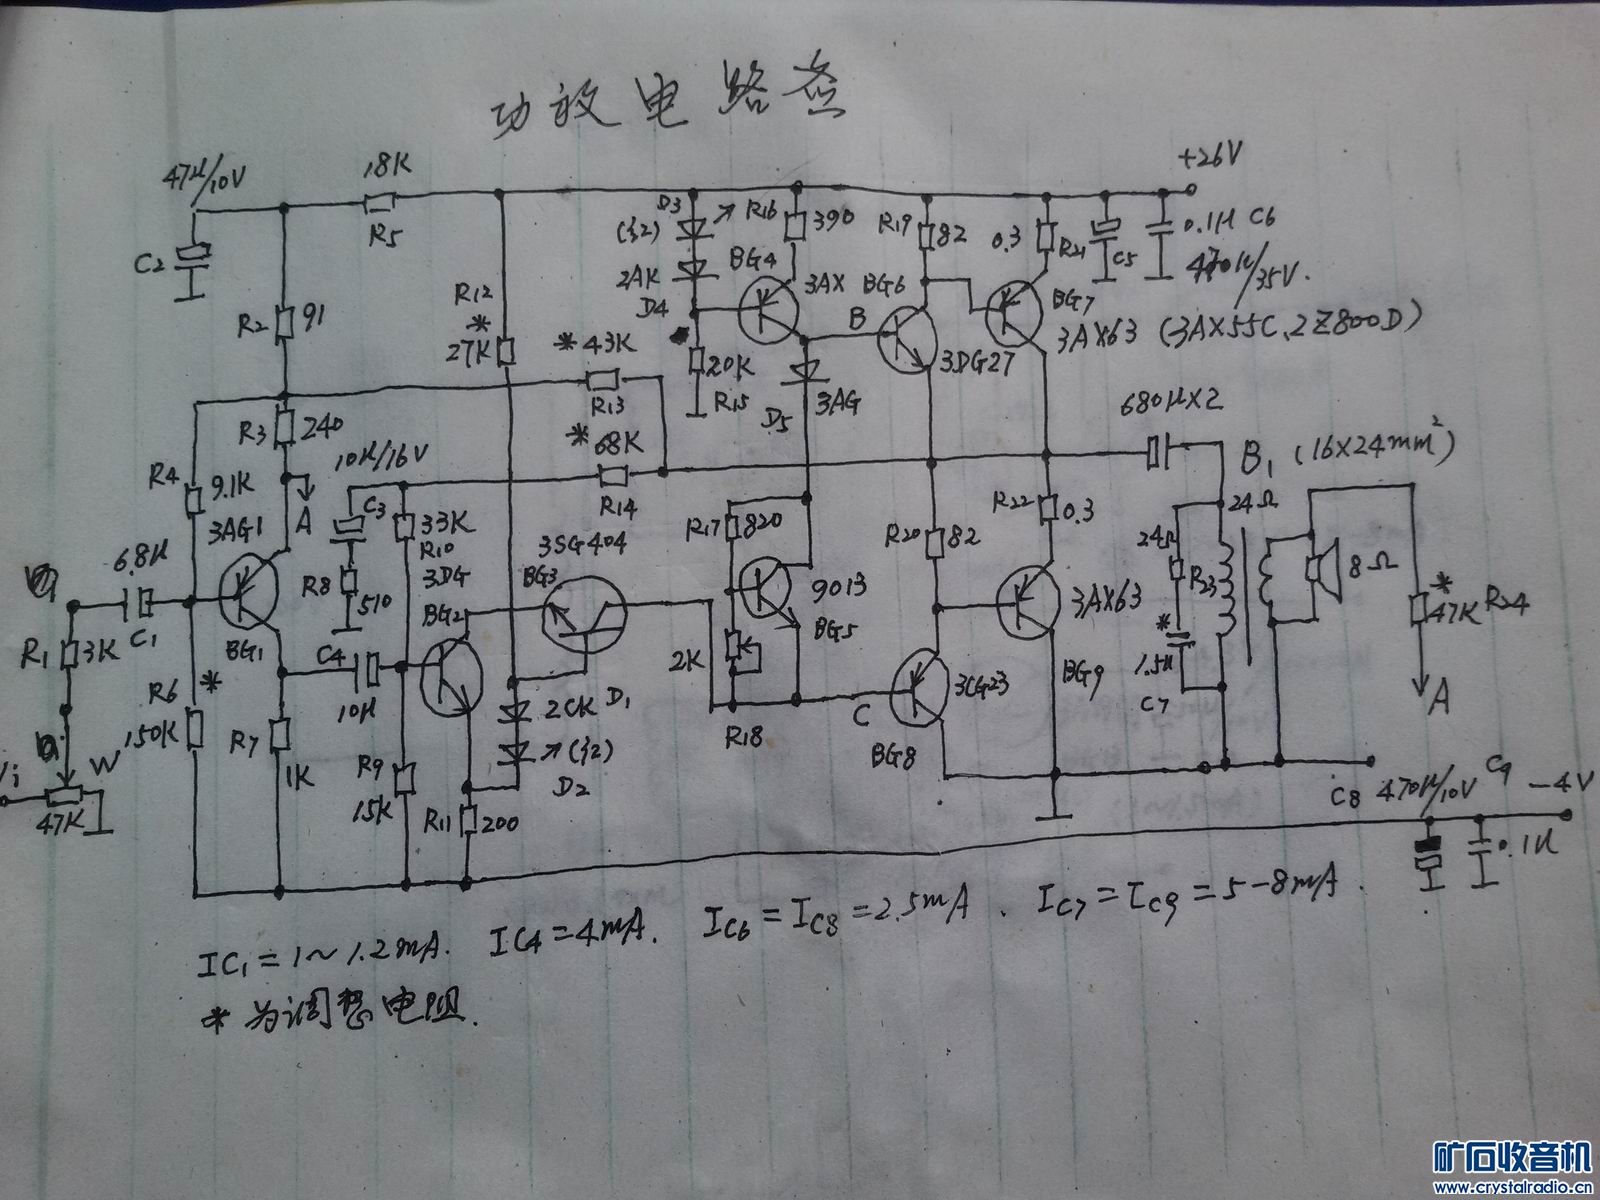 功放电路
+26V
47μ/10V
18K
R5
C2
D3
R16
390
R19
82
0.3
R21
C5
0.1μ C6
470μ/35V.
2AK
D4
BG4
3AX
BG6
BG7
3AX63 (3AX55C.2Z800D)
R2
91
R12
*
27K
* 43K
R13
20K
R15
B
3DG27
D5
3AG
680μX2
R3
240
* 68K
R14
10μ/16V
C3
B1 (16X24mm²)
R4
9.1K
A
33K
R10
3DG
R8
510
3SG404
BG3
R17
820
R20
82
R22
0.3
24Ω
24Ω
R23
8Ω
* 47K R24
A
3AG1
6.8μ
C1
BG1
BG2
9013
BG5
3AX63
BG9
R1
3K
C4
10μ
2K
R18
2CK D1
D2
C
3CG23
BG8
* 1.5μ
C7
R6 *
150K
R7
1K
R9
15K
R11
200
W
47K
C8 470μ/10V C9 -4V
0.1μ
IC1=1~1.2mA. IC4=4mA. IC6=IC8=2.5mA. IC7=IC9=5-8mA.
* 为调整电阻.
矿石收音机
www.crystalradio.cn